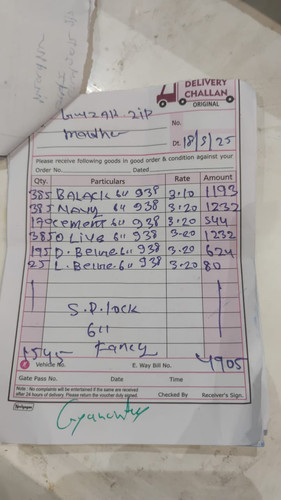 DELIVERY
CHALLAN
ORIGINAL
GULZAR ZIP
No.
Dt. 18/5/25
Please receive following goods in good order & condition against your
Order No. Dated
Qty. Particulars Rate Amount
385 BALACK 6" 938 3.10 1193
385 NAVY 6" 938 3.20 1232
170 CEMENT 6" 938 3.20 544
385 OLIVE 6" 938 3.20 1232
195 D. Beige 6" 938 3.20 624
25 L. Beige 6" 938 3.20 80
S.P. lock
6"
Fancy
1545 4905
Vehicle No. E. Way Bill No.
Gate Pass No. Date Time
Note : No complaints will be entertained if the same are received
after 24 hours of delivery. Please return the voucher duly signed. Checked By Receiver's Sign.